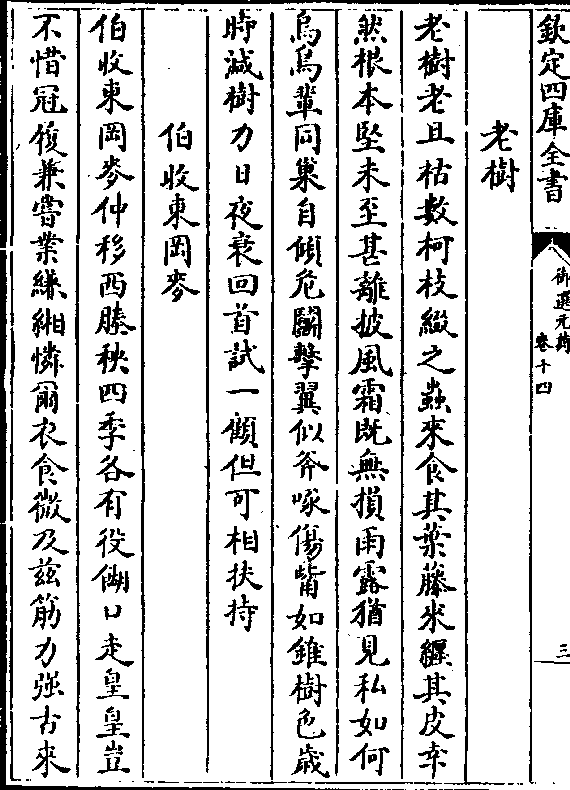 欽定四庫全書
御選元詩
卷十四
三
老樹
老樹老且枯數柯枝綴之蟲來食其葉藤來纒其皮幸
然根本堅未至甚離披風霜既無損雨露猶見私如何
烏鳥輩同巢自傾危鬭擊翼似斧啄傷觜如錐樹色歲
時減樹力日夜衰回首試一顧但可相扶持
伯收東岡麥
伯收東岡麥仲移西塍秧四季各有役餬口走皇皇豈
不惜冠履兼嘗業縑緗憐爾衣食微及兹筋力強古來